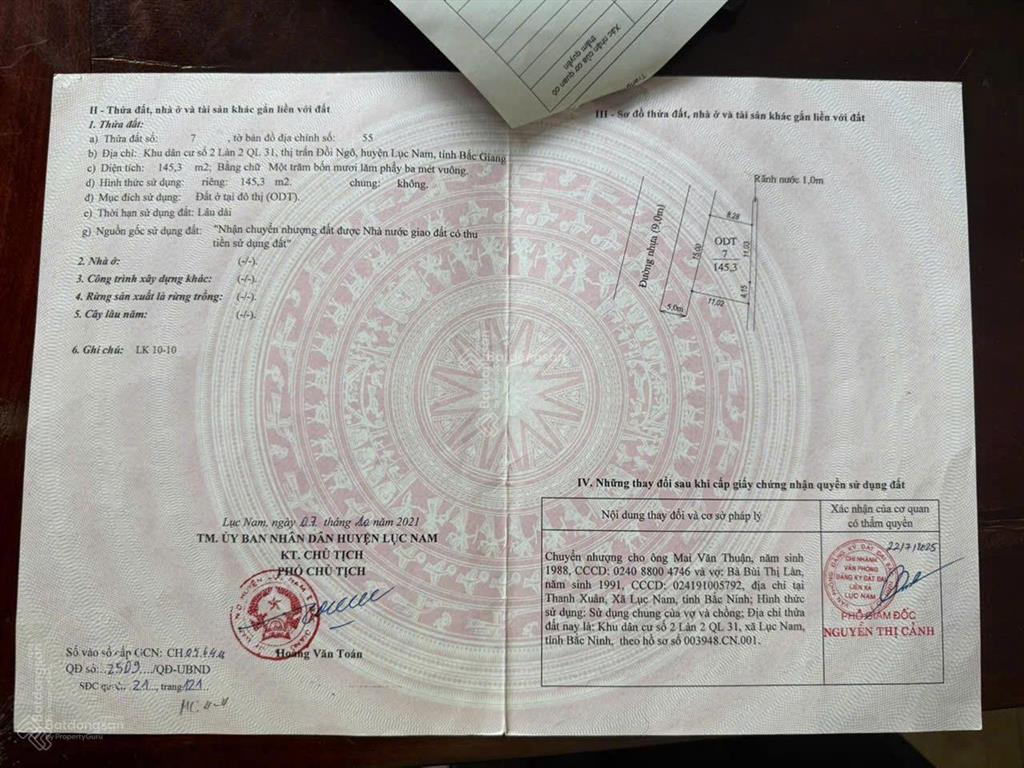 Xác nhận của cơ quan có
thẩm quyền
II - Thửa đất, nhà ở và tài sản khác gắn liền với đất
1. Thửa đất:
a) Thửa đất số: 7 , tờ bản đồ địa chính số: 55
b) Địa chỉ: Khu dân cư số 2 Làn 2 QL 31, thị trấn Đồi Ngô, huyện Lục Nam, tỉnh Bắc Giang
c) Diện tích: 145,3 m2; Bằng chữ Một trăm bốn mươi lăm phẩy ba mét vuông.
d) Hình thức sử dụng: riêng: 145,3 m2. chung: không.
đ) Mục đích sử dụng: Đất ở tại đô thị (ODT).
e) Thời hạn sử dụng đất: Lâu dài
g) Nguồn gốc sử dụng đất: "Nhận chuyển nhượng đất được Nhà nước giao đất có thu
tiền sử dụng đất"
2. Nhà ở: (-/-).
3. Công trình xây dựng khác: (-/-).
4. Rừng sản xuất là rừng trồng: (-/-).
5. Cây lâu năm: (-/-).
6. Ghi chú: LK 10-10
Lục Nam, ngày 07 tháng 10 năm 2021
TM. ỦY BAN NHÂN DÂN HUYỆN LỤC NAM
KT. CHỦ TỊCH
PHÓ CHỦ TỊCH
Hoàng Văn Toán
Số vào sổ cấp GCN: CH
QĐ số: 2509 /QĐ-UBND
SĐC quyển 21, trang 121
III - Sơ đồ thửa đất, nhà ở và tài sản khác gắn liền với đất
Rãnh nước 1,0m
Đường nhựa (9,0m)
8,28
15,00
ODT
7
145,3
11,03
4,15
11,02
5,0m
IV. Những thay đổi sau khi cấp giấy chứng nhận quyền sử dụng đất
Nội dung thay đổi và cơ sở pháp lý
Xác nhận của cơ quan
có thẩm quyền
Chuyển nhượng cho ông Mai Văn Thuận, năm sinh
1988, CCCD: 0240 8800 4746 và vợ: Bà Bùi Thị Làn,
năm sinh 1991, CCCD: 024191005792, địa chỉ tại
Thanh Xuân, Xã Lục Nam, tỉnh Bắc Ninh; Hình thức
sử dụng: Sử dụng chung của vợ và chồng; Địa chỉ thửa
đất nay là: Khu dân cư số 2 Làn 2 QL 31, xã Lục Nam,
tỉnh Bắc Ninh, theo hồ sơ số 003948.CN.001.
22/7/2025
CHI NHÁNH
VĂN PHÒNG
ĐĂNG KÝ ĐẤT ĐAI
LIÊN XÃ
LỤC NAM
PHÓ GIÁM ĐỐC
NGUYỄN THỊ CẢNH
Batdongsan
Batdongsan
by PropertyGuru